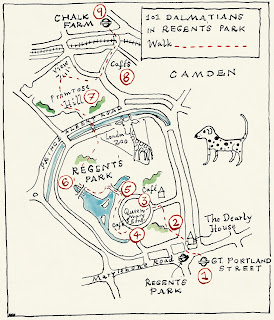 CHALK FARM
9
102 DALMATIANS
IN
REGENTS PARK
Walk
Cafés
8
View
7
Primrose
Hill
CAMDEN
ALBERT ROAD
London
Zoo
REGENTS
PARK
6
5
Café
3
Queen
Café
2
4
The Dearly
House
Marylebone Road
1
GT. PORTLAND
STREET
REGENTS
PARK